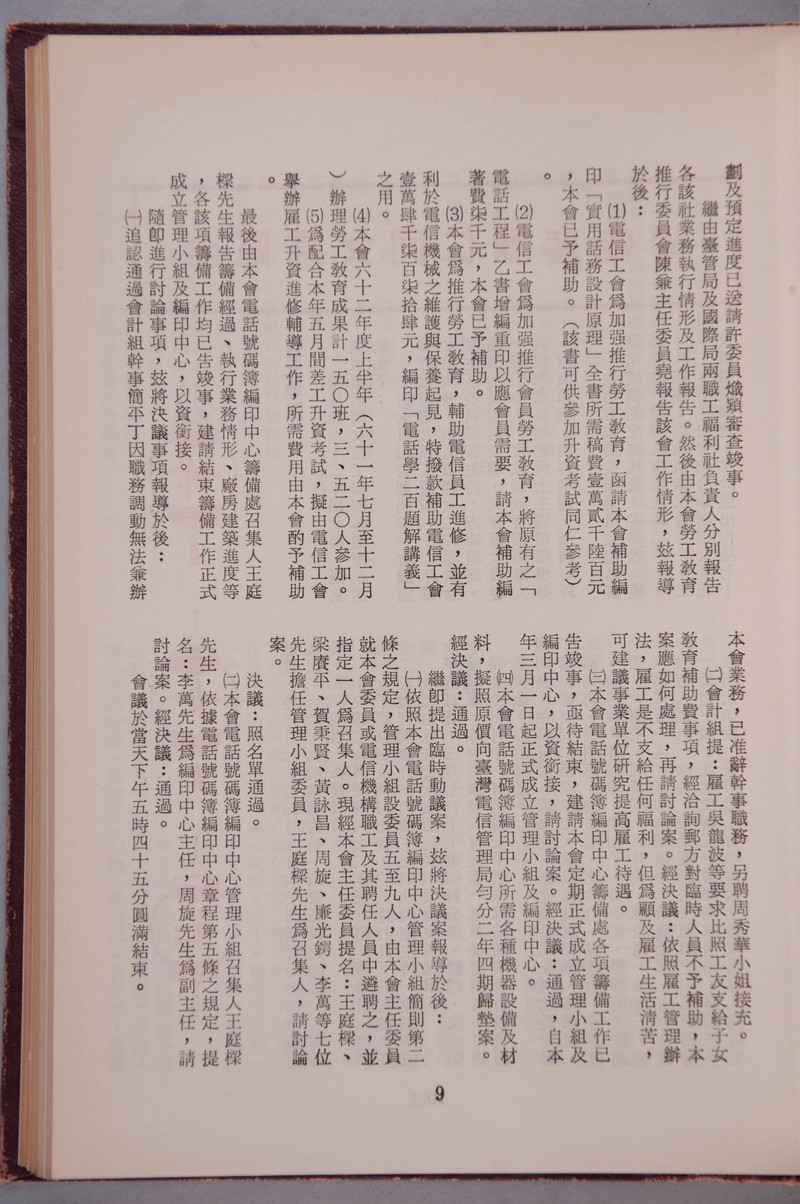 劃及預定進度已送請許委員熾潁審查竣事。
繼由臺管局及國際局兩職工福利社負責人分別報告
各該社業務執行情形及工作報告。然後由本會勞工敎育
推行委員會陳兼主任委員堯報告該會工作情形，玆報導
於後：
⑴電信工會爲加强推行勞工敎育，函請本會補助編
印「實用話務設計原理」全書所需稿費壹萬貳千陸百元
，本會已予補助。（該書可供參加升資考試同仁參考）
。
⑵電信工會爲加强推行會員勞工敎育，將原有之「
電話工程」乙書增編重印以應會員需要，請本會補助編
著費柒千元，本會已予補助。
⑶本會爲推行勞工敎育，輔助電信員工進修，並有
利於電信機械之維護與保養起見，特撥款補助電信工會
壹萬肆千柒百柒拾肆元，編印「電話學二百題解講義」
之用。
⑷本會六十二年度上半年（六十一年七月至十二月
）辦理勞工敎育成果計一五〇班，三、五二〇人參加。
⑸爲配合本年五月間差工升資考試，擬由電信工會
舉辦雇工升資進修輔導工作，所需費用由本會酌予補助
。
最後由本會電話號碼簿編印中心籌備處召集人王庭
樑先生報告籌備經過、執行業務情形、廠房建築進度等
，各該項籌備工作均已告竣事，建請結束籌備工作正式
成立管理小組及編印中心，以資銜接。
隨卽進行討論事項，玆將決議事項報導於後：
㈠追認通過會計組幹事簡平丁因職務調動無法兼辦
本會業務，已准辭幹事職務，另聘周秀華小姐接充。
㈡會計組提：雇工吳龍波等要求比照工友支給子女
敎育補助費事項，經洽詢郵方對臨時人員不予補助，本
案應如何處理，再請討論案。經決議：依照雇工管理辦
法，雇工是不支給任何福利，但爲顧及雇工生活淸苦，
可建議事業單位硏究提高雇工待遇。
㈢本會電話號碼簿編印中心籌備處各項籌備工作已
告竣事，亟待結束，建請本會定期正式成立管理小組及
編印中心，以資銜接，請討論案。經決議：通過，自本
年三月一日起正式成立管理小組及編印中心。
㈣本會電話號碼簿編印中心所需各種機器設備及材
料，擬照原價向臺灣電信管理局勻分二年四期歸墊案。
經決議：通過。
繼卽提出臨時動議案，玆將決議案報導於後：
㈠依照本會電話號碼簿編印中心管理小組簡則第二
條之規定，管理小組設委員五至九人，由本會主任委員
就本會委員或電信機構職工及其聘任人員中遴聘之，並
指定一人爲召集人。現經本會主任委員提名：王庭樑、
梁賡平、賀秉賢、黃詠昌、周旋、厰光鍔、李萬等七位
先生擔任管理小組委員，王庭樑先生爲召集人，請討論
案。
決議：照名單通過。
㈡本會電話號碼簿編印中心管理小組召集人王庭樑
先生，依據電話號碼簿編印中心章程第五條之規定，提
名：李萬先生爲編印中心主任，周旋先生爲副主任，請
討論案。經決議：通過。
會議於當天下午五時四十五分圓滿結束。
9